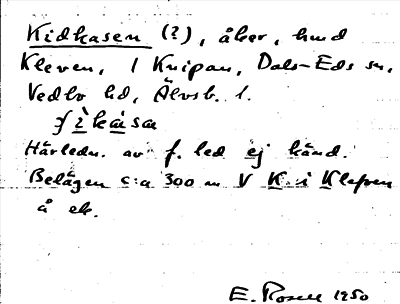 Kidkasen (?), åker, hmd
Kleven, 1 Knipan, Dals-Eds sn,
Vedbo hd, Älvsb. l.
Härledn. av f. led ej känd.
Belägen c:a 300 m V K. i Kleven
å ek.
E. Rosen 1950